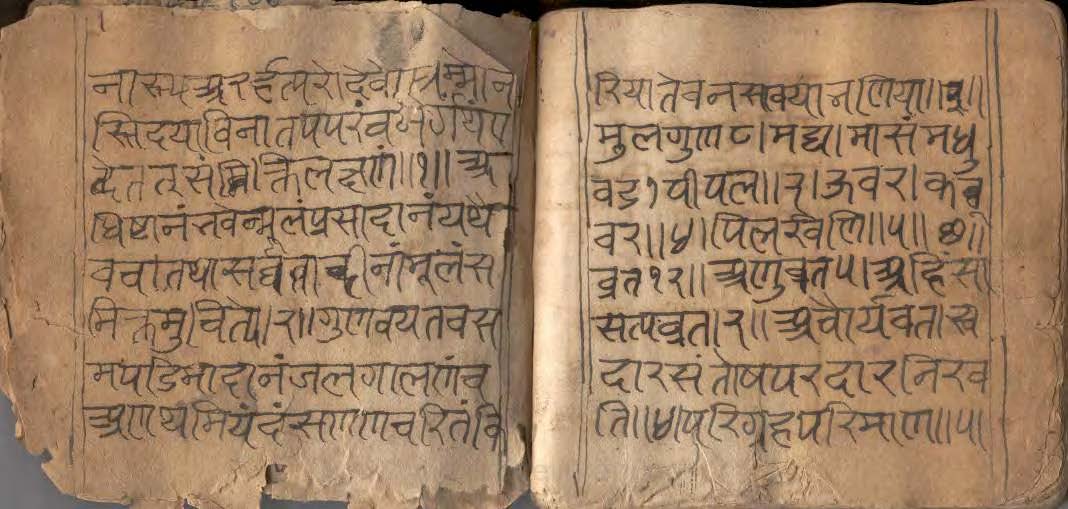 नास्यअरर्हत्परोदेवोधर्म्मोन
स्तिदयाविनातपपरंचनैर्ग्रंथ्यमे
वेततसंमिक्तिलक्षणं॥१॥अ
धिष्टानंनवेन्मूलंप्रसादानंयथै
ववातथासर्वव्रतादीनांमूलंस
मिक्तमुचित्ये।२॥गुणवयतवस
मपडिमादानंजलगालणंच
अणथमियंदंसणणाणचरितंकि
रियातेवनसवयानणिया॥३॥
मुलगुण८।मद्य।मासंमधु
वड१पीपल॥२।ऊवर।कठुं
वर॥४।पिलर्खणि॥५॥छ॥
व्रत१२॥अणुव्रत५।अहिंसा
सत्पव्रता।२॥अचौर्यव्रता।स्व
दारसंतोषपरदारनिरव
ति॥४।परिग्रहपरिमाण॥५॥